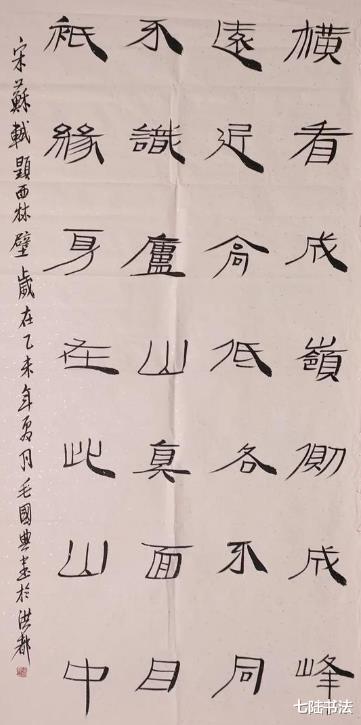 橫看成嶺側成峰
遠近高低各不同
不識廬山真面目
祇緣身在此山中
宋蘇軾題西林壁歲在乙未年夏月毛國典書於洪都
七陆书法